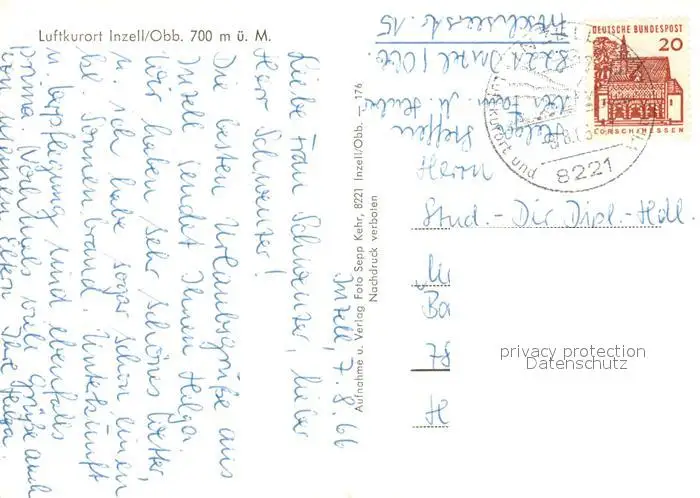 Luftkurort Inzell/Obb. 700 m ü. M.
Inzell, 7.8.66
Liebe Frau Schwenzer, lieber
Herr Schwenzer!
Die besten Urlaubsgrüße aus
Inzell sendet Ihnen Helga.
Wir haben sehr schönes Wetter,
u. ich habe sogar schon einen
Sonnenbrand. Unterkunft
u. Verpflegung sind ebenfalls
prima. Nochmals viele Grüße auch
von meinen Eltern Ihre Helga.
Aufnahme u. Verlag Foto Sepp Kehr, 8221 Inzell/Obb. — 176
Nachdruck verboten
Helga Steffen
8221 Inzell/Obb.
15
DEUTSCHE BUNDESPOST
20
LORSCH/HESSEN
Luftkurort und
8221
Herrn
Stud.-Dir. Dipl.-Hdl.
privacy protection
Datenschutz